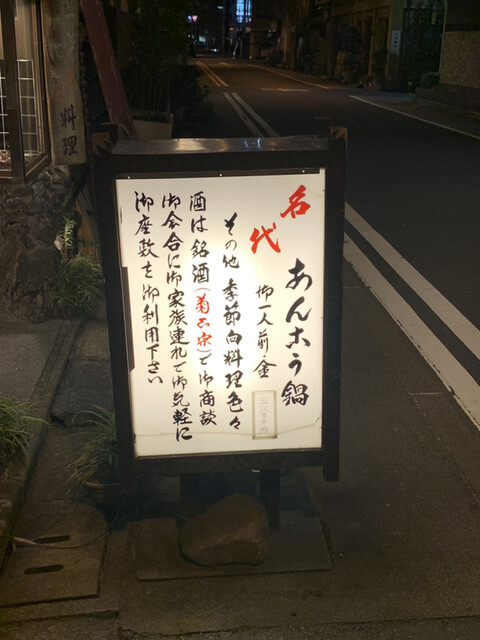 名代
あんこう鍋
御一人前・金
その他 季節向料理色々
酒は銘酒(菊正宗)で御商談
御会合に御家族連れで御気軽に
御座敷を御利用下さい
料理